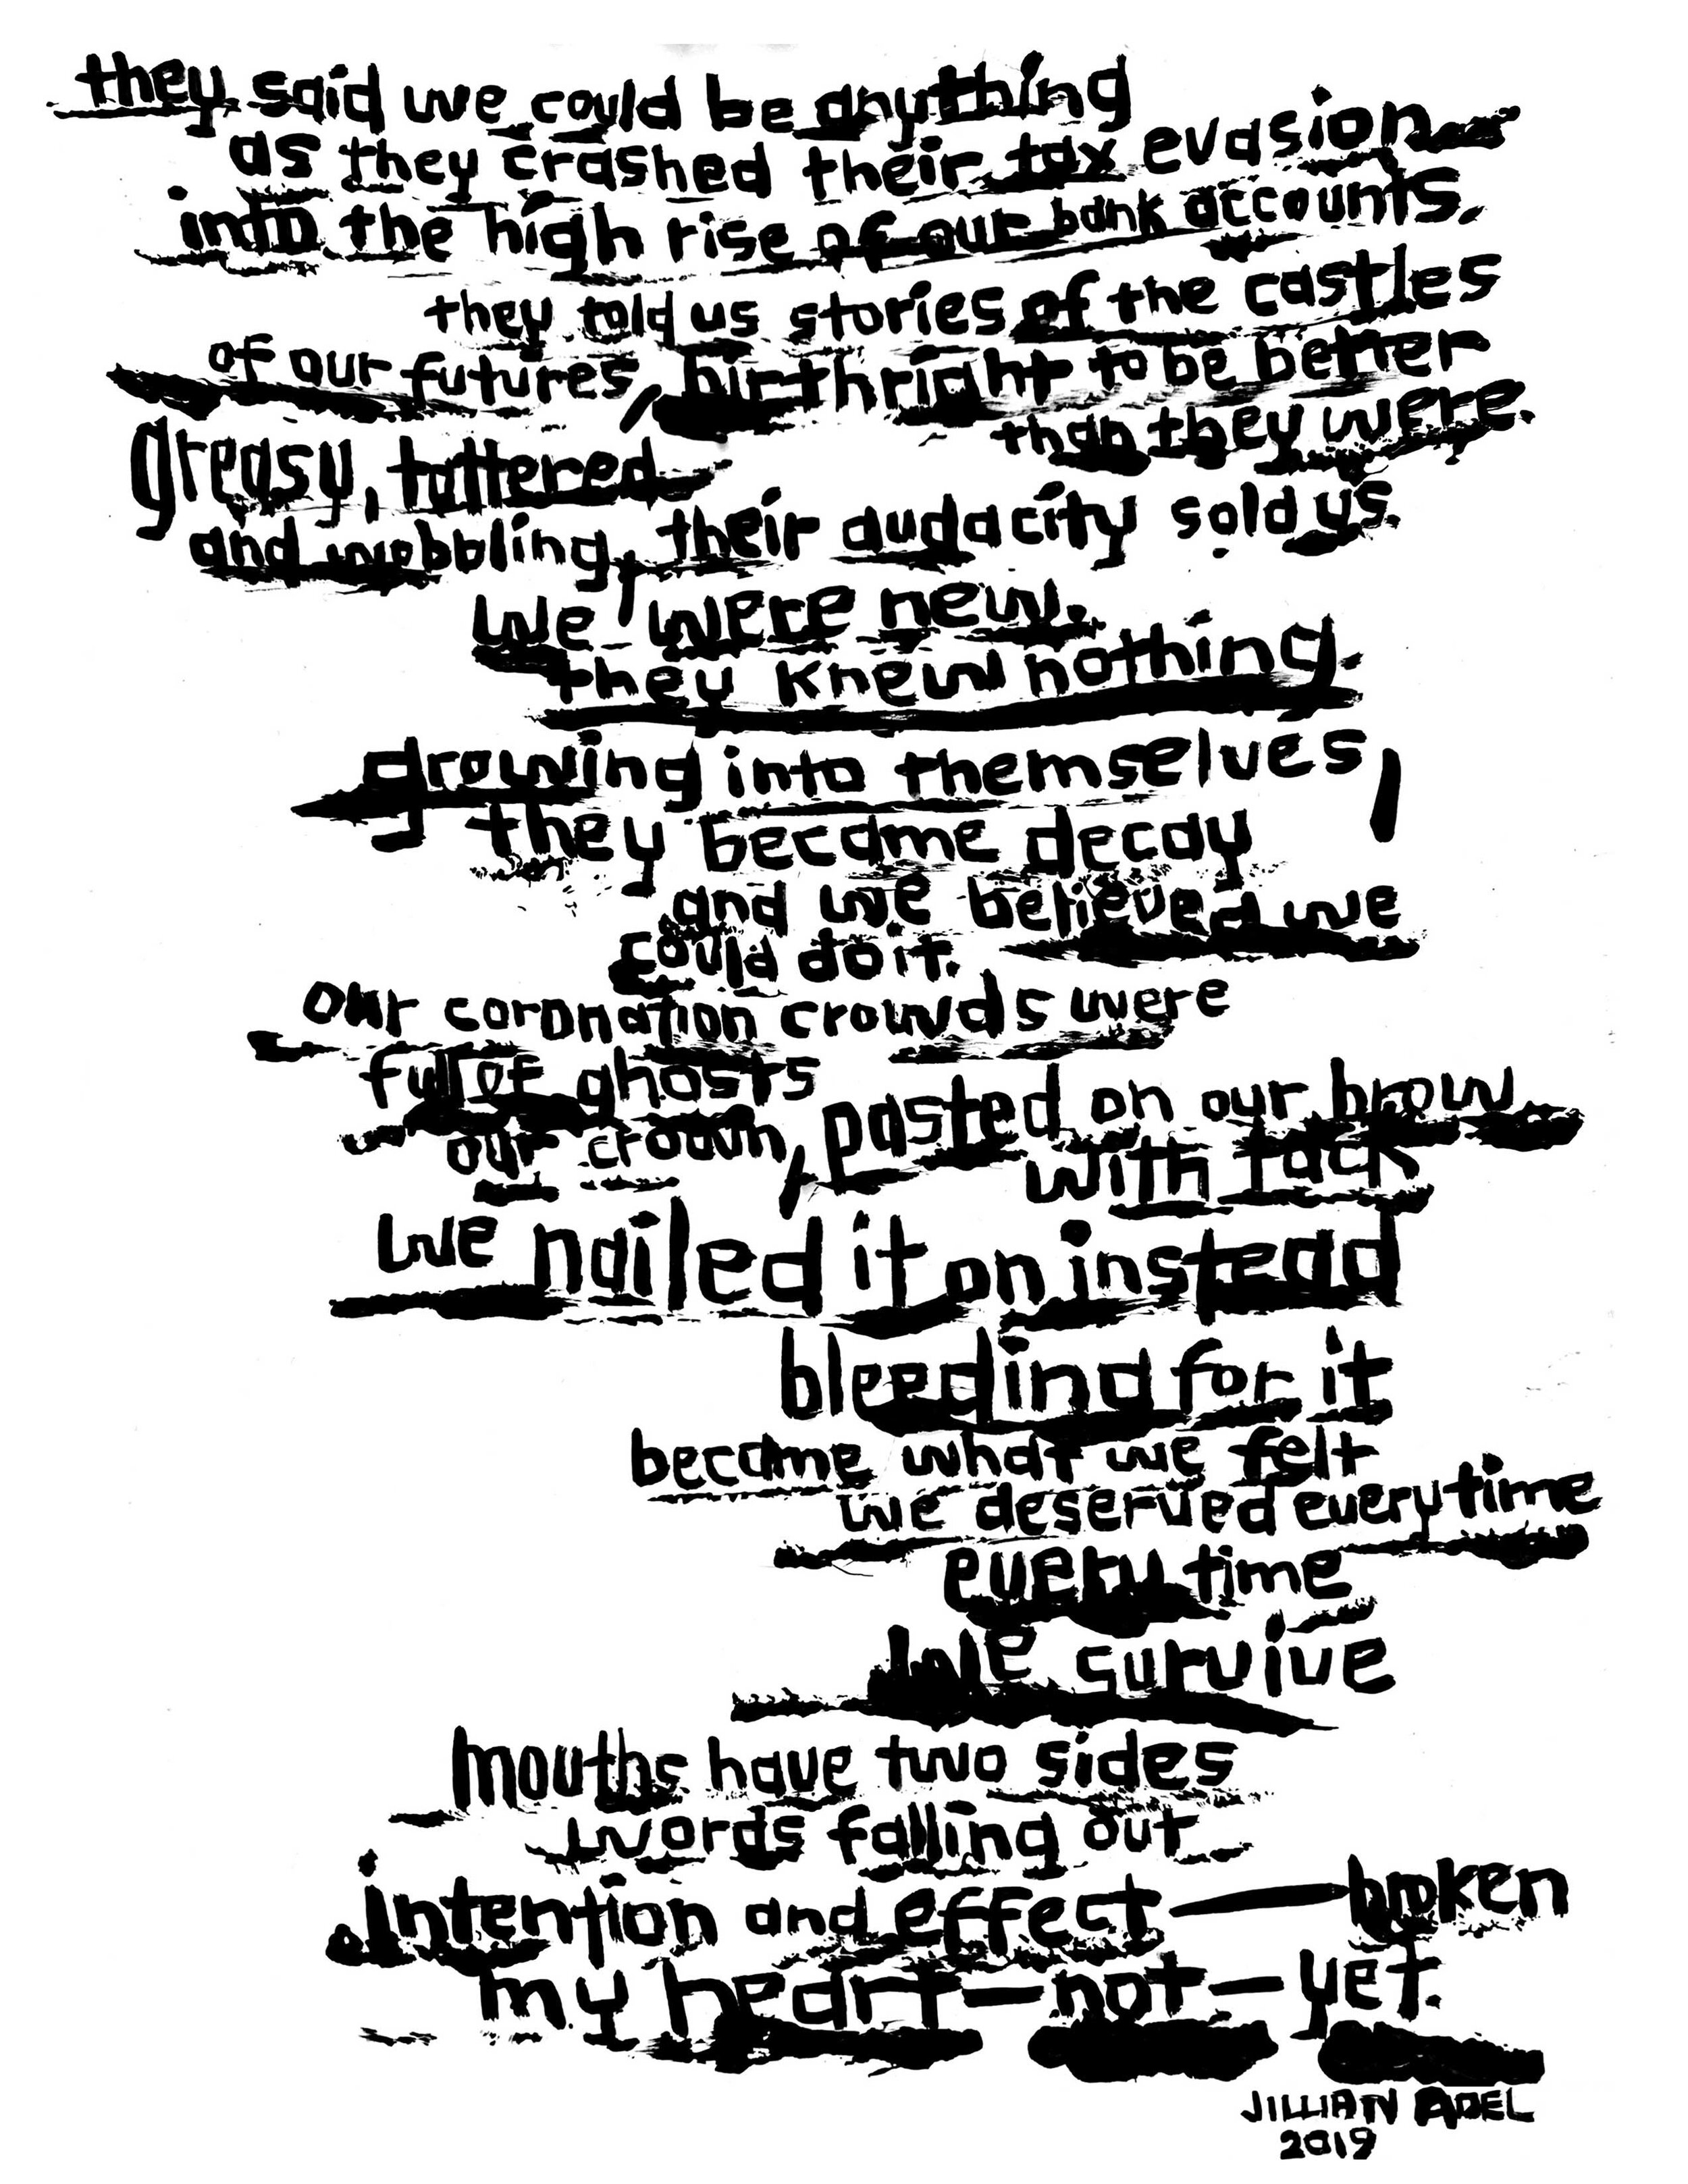 they said we could be anything
as they crashed their tax evasion
into the high rise of our bank accounts.
they told us stories of the castles
of our futures, birthright to be better
than they were.
greasy, tattered
and wobbling, their audacity sold us.
we were new.
they knew nothing.
growing into themselves,
they became decay
and we believed we
could do it.
our coronation crowds were
full of ghosts
our crown, pasted on our brow
with tack
we nailed it on instead
bleeding for it
became what we felt
we deserved everytime
every time
we survive
mouths have two sides
words falling out
intention and effect — broken
my heart — not — yet.
JILLIAN ADEL
2019